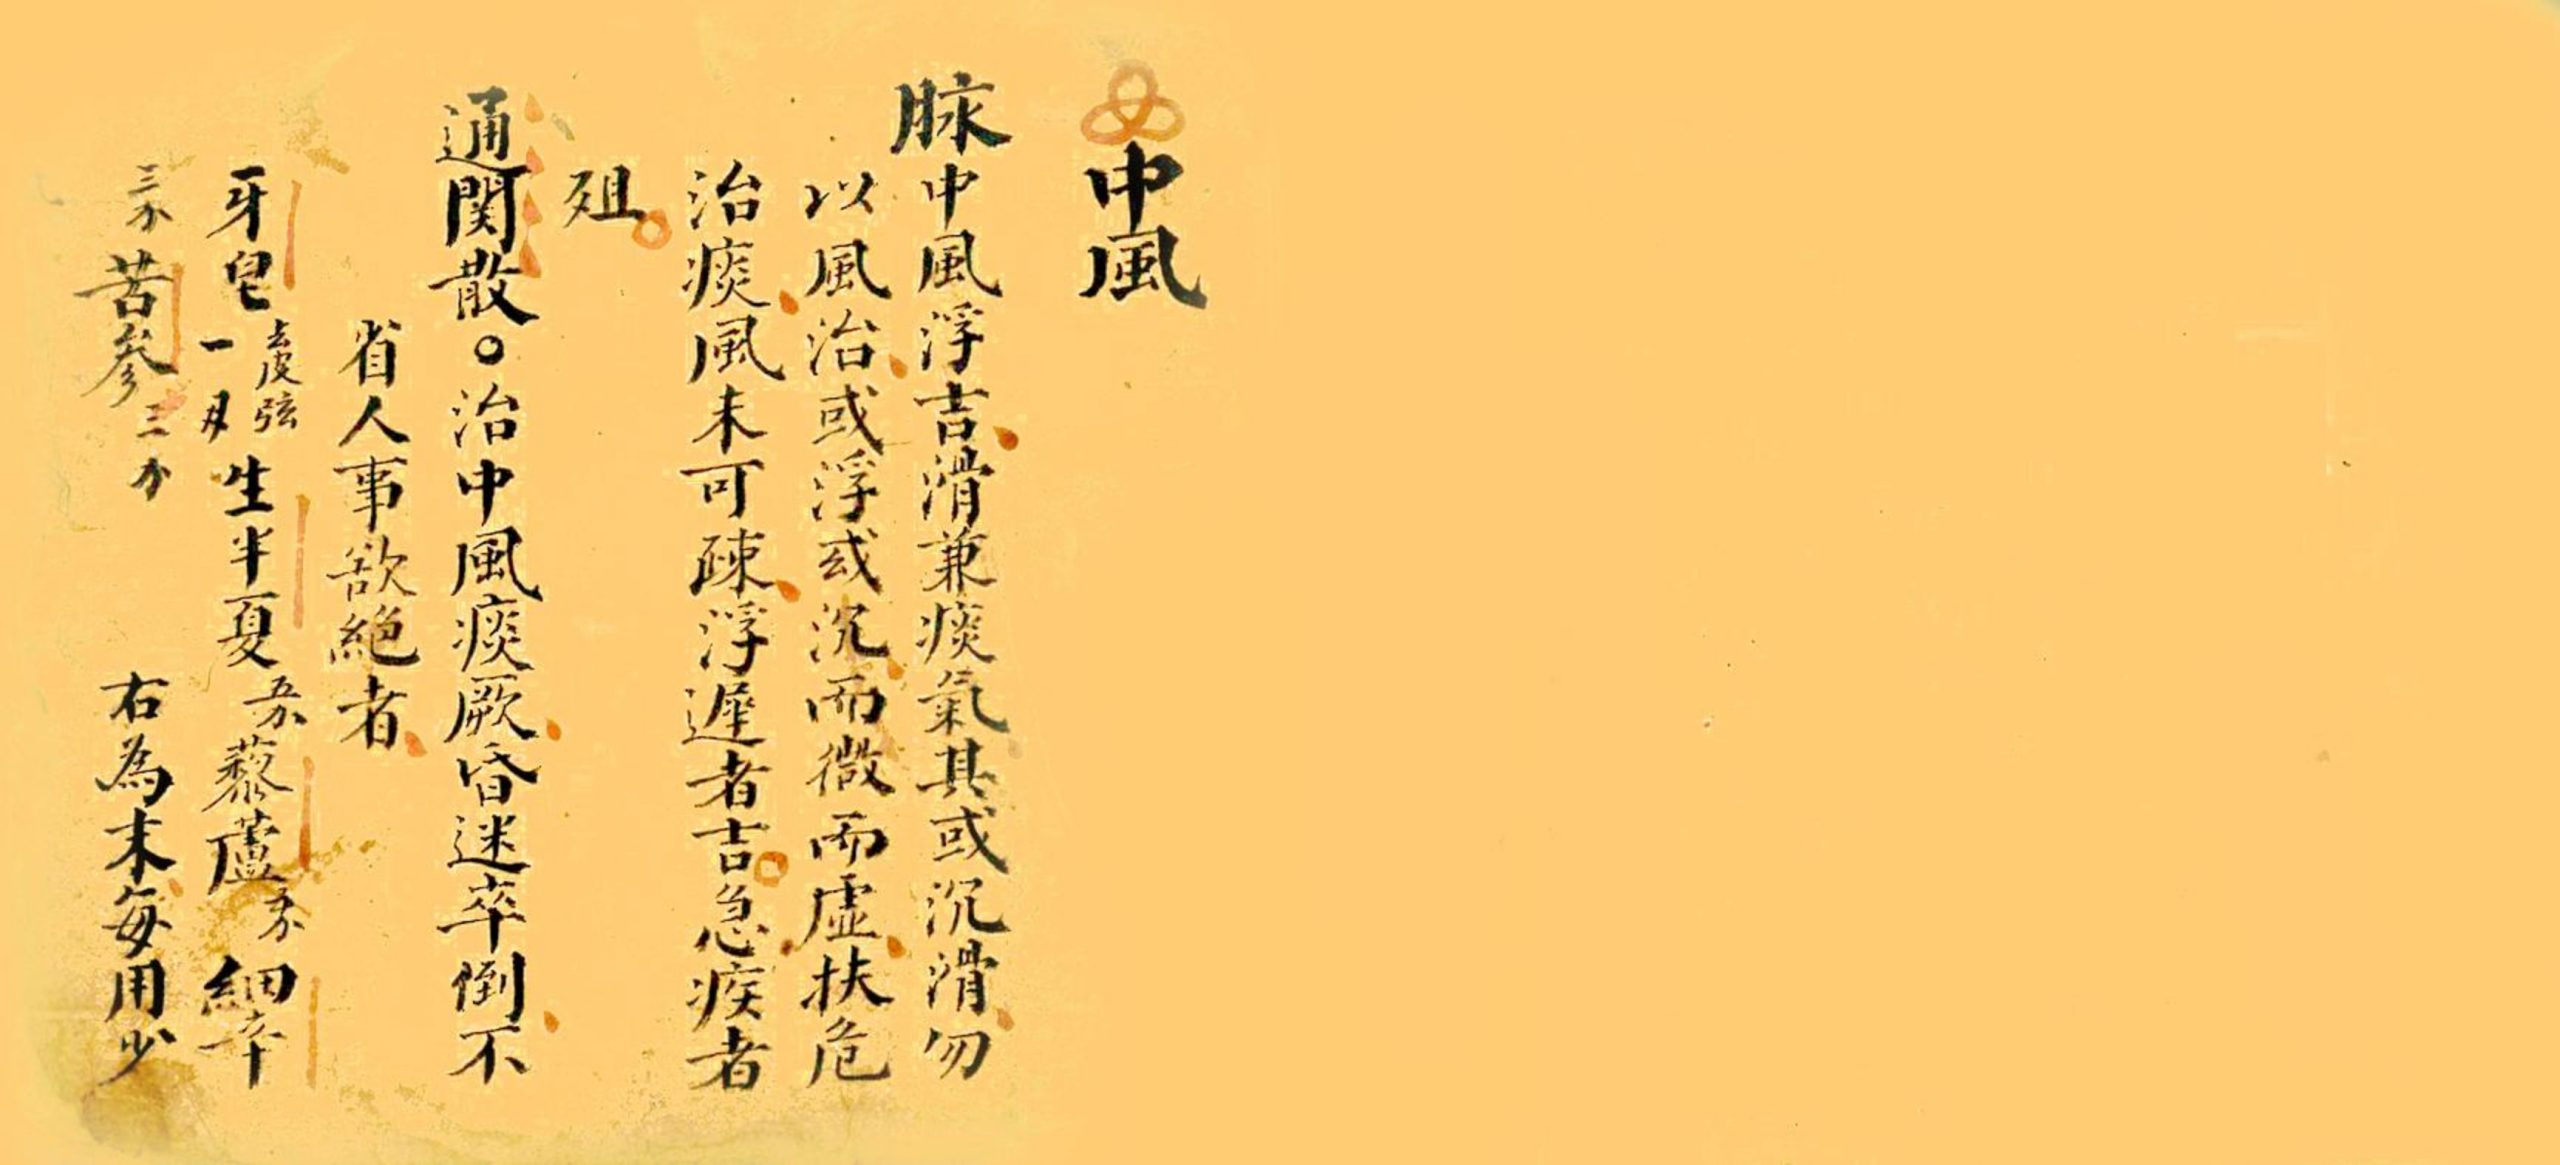 中風
脉中風浮吉滑兼痰氣其或沉滑勿
以風治或浮或沉而微而虛扶危
治痰風未可疎浮遲者吉急疾者
殂
通関散。治中風痰厥昏迷卒倒不
省人事欲絕者
牙皂去皮弦一刄生半夏五分藜蘆五分細辛
三分苦參三分右為末每用少